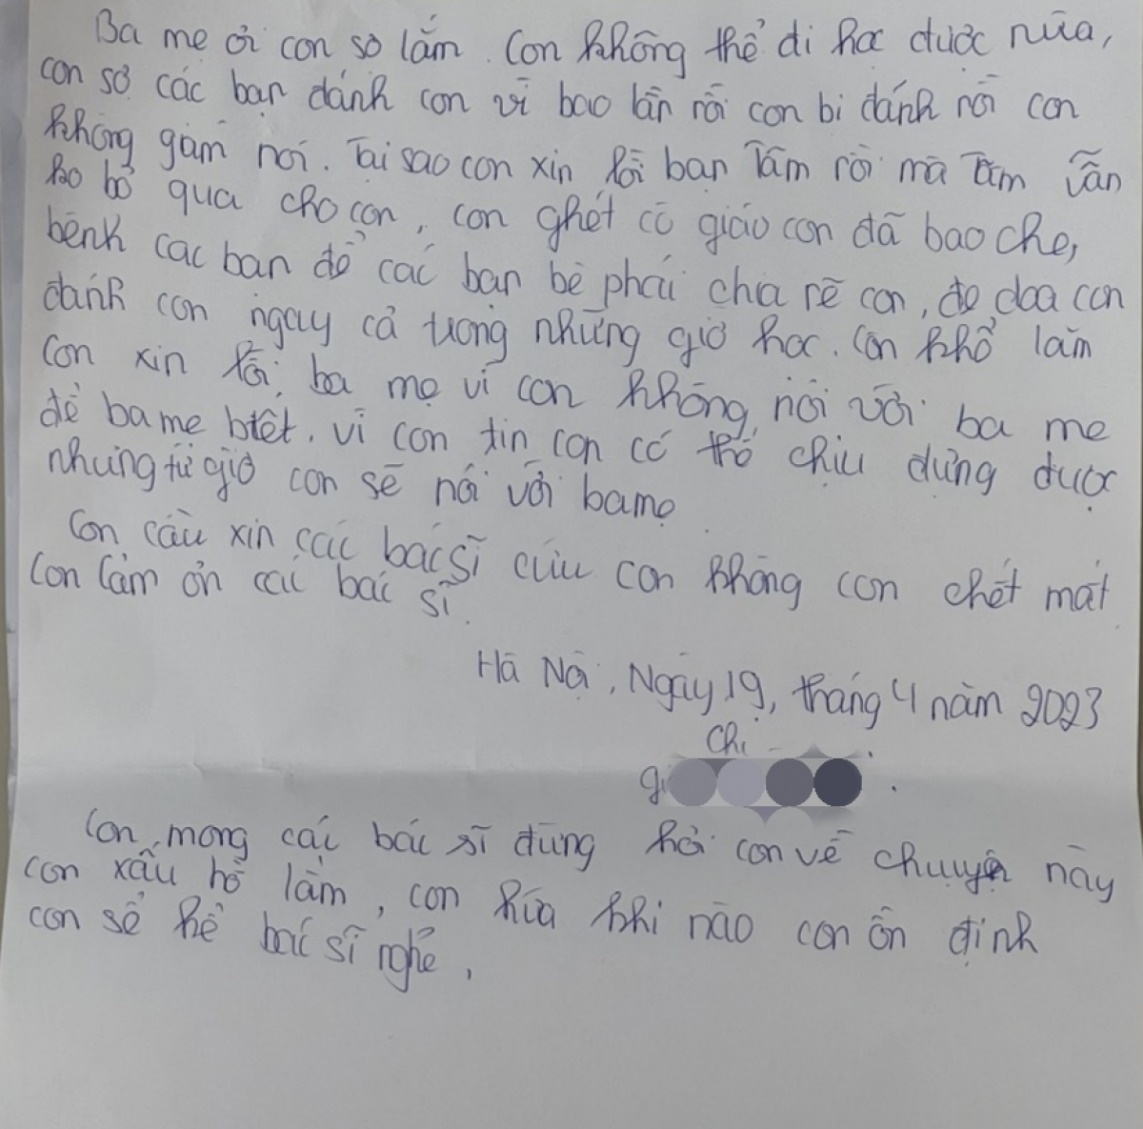 Ba mẹ ơi con sợ lắm. Con không thể đi học được nữa,
con sợ các bạn đánh con vì bao lần rồi con bị đánh rồi con
không giám nói. Tại sao con xin lỗi bạn Tâm rồi mà Tâm vẫn
ko bỏ qua cho con, con ghét cô giáo con đã bao che,
bênh các bạn để các bạn bè phái chia rẽ con, đe doạ con
đánh con ngay cả trong những giờ học. Con khổ lắm
Con xin lỗi ba mẹ vì con không nói với ba mẹ
để ba mẹ biết. vì con tin con có thể chịu đựng được
nhưng từ giờ con sẽ nói với ba mẹ
Con cầu xin các bác sĩ cứu con không con chết mất
Con cảm ơn các bác sĩ.
Hà Nội, Ngày 19, tháng 4 năm 2023
Chi
Con mong các bác sĩ đừng hỏi con về chuyện này
con xấu hổ lắm, con hứa khi nào con ổn định
con sẽ kể bác sĩ nghe.